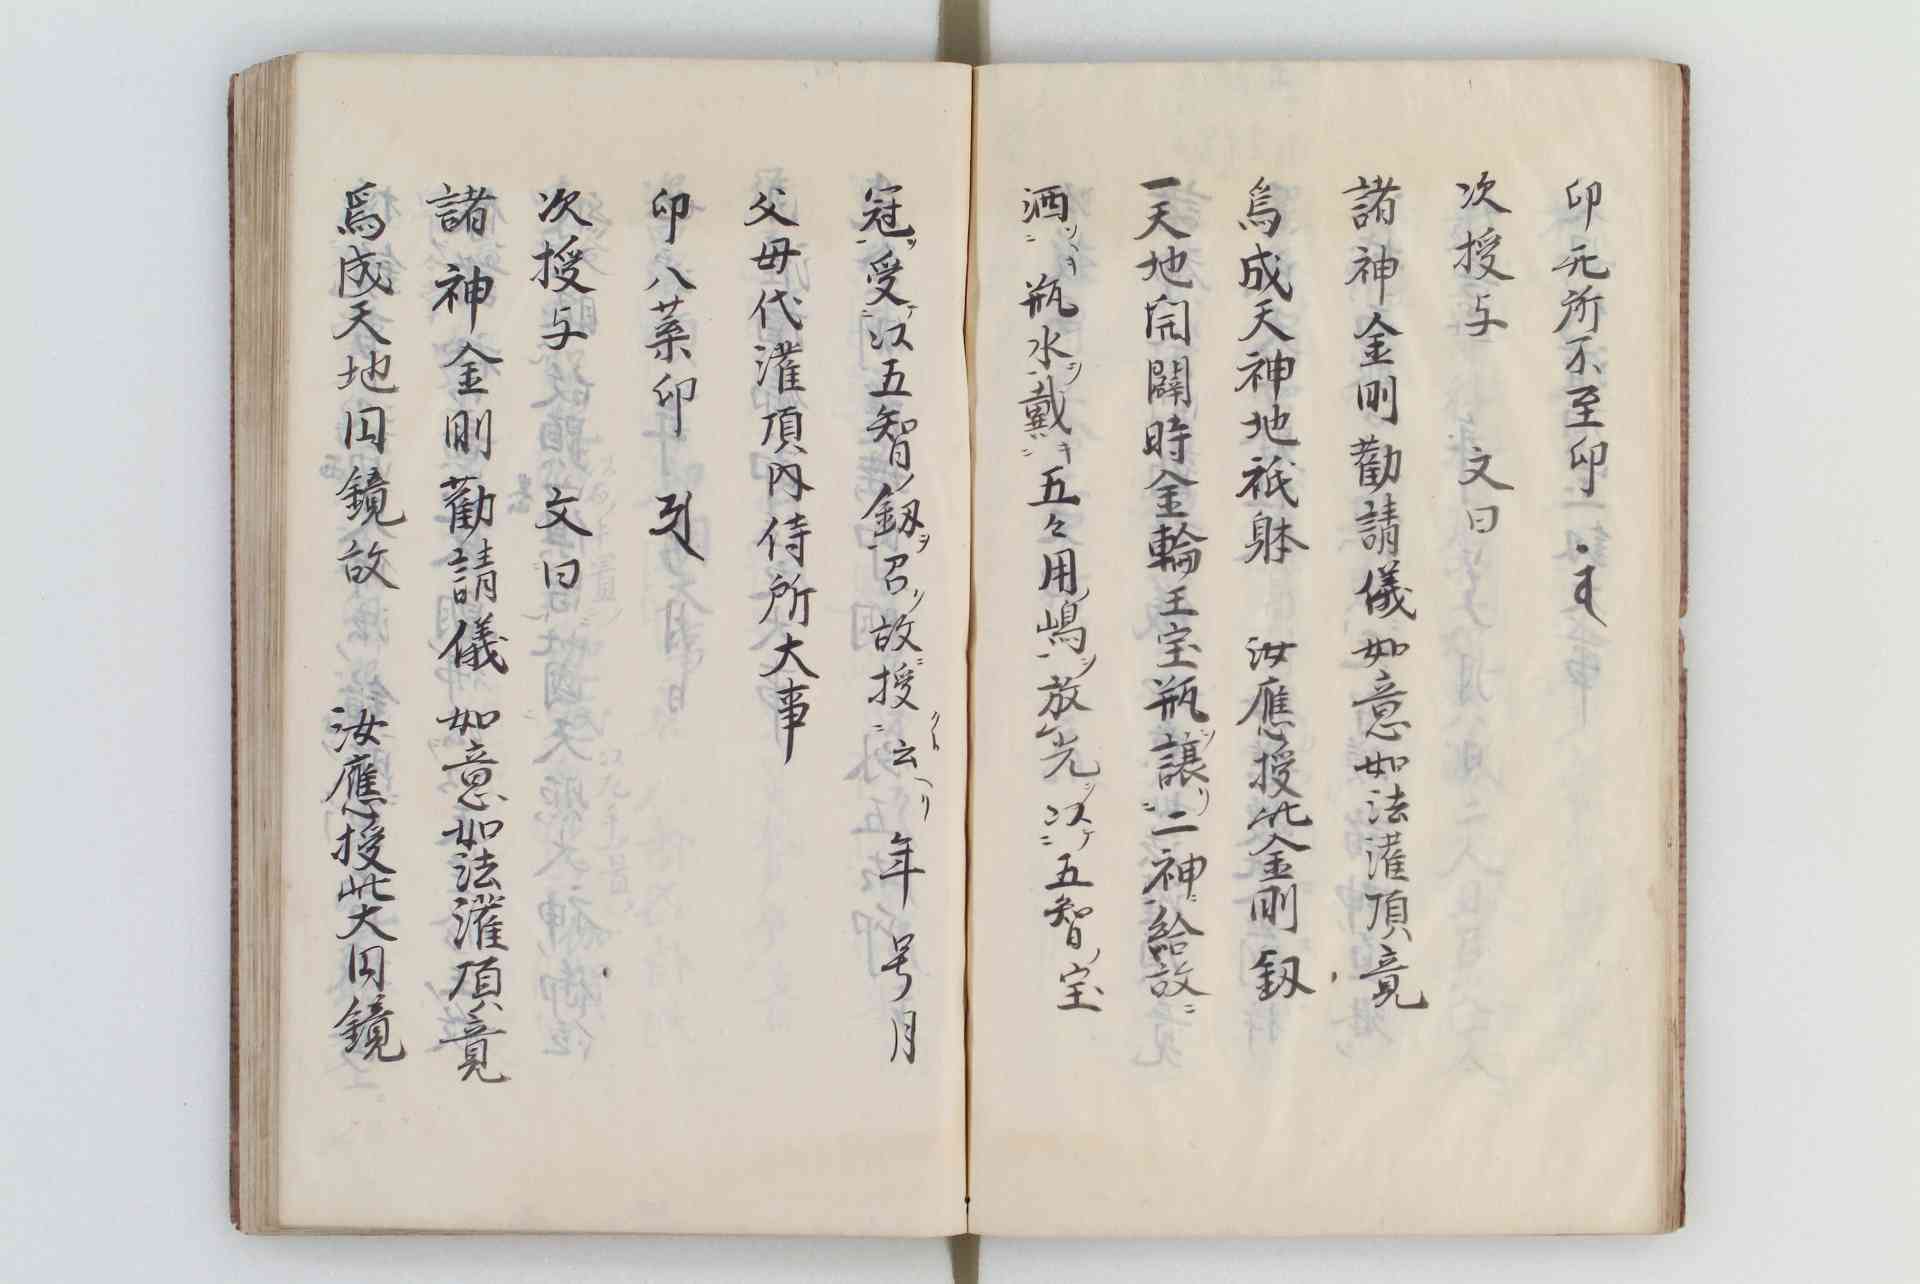 印 无所不至印
次授与 文曰
諸神金剛勸請儀如意如法灌頂竟
為成天神地祇躰 汝應授此金剛釼
一天地開闢時金輪王宝瓶譲二神給故ニ
洒瓶水戴五々用嶋放光以五智ノ宝
冠受以五智ノ釼ヲ召故授云 年号月
父母代灌頂内侍所大事
印 八葉印
次授与 文曰
諸神金剛勸請儀如意如法灌頂竟
為成天地円鏡故 汝應授此大円鏡